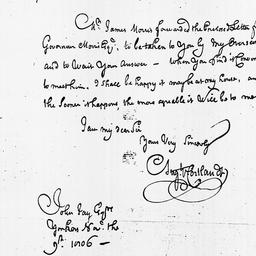 Mr. James Morris forwarded the Enclosed Letter f
Governor Morris Esqr. to be taken to You by My Overseer
and to Wait Your Answer — When You find it Conve
to meet him, I shall be happy it may be at my house, an
the Sooner it happens the more agreeable it will be to me
I am my dear Sir
Yours Very Sincerely
John Jay Esqre
Yonkers the